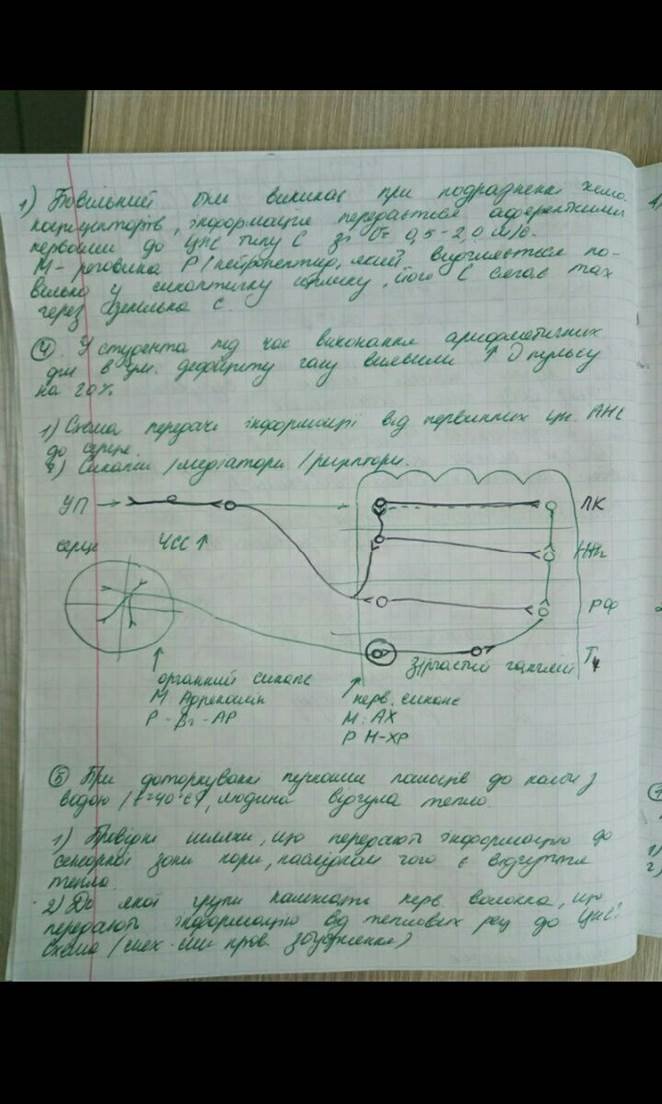 1) Повільний біль виникає при подразненні хемо-
ноцицепторів, інформація передається аферентними
нервами до ЦНС типу С зі V= 0,5-2,0 м/с.
М- речовина Р /нейропептид, який виділяється по-
вільно у синаптичну щілину, його С сягає max
через декілька с.
④ У студента під час виконання арифметичних
дій в ум. дефіциту часу виявили ↑ пульсу
на 20%.
1) Схема передачі інформації від первинних АНС
до серця.
2) Синапси /медіатори /рецептори.
УП
ЛК
серце
ЧСС ↑
РФ
зірчастий гангліій
органний синапс
М Адреналін
Р - β1 - АР
нерв. синапс
М: АХ
Р Н-ХР
⑤ При доторкуванні пучками пальців до колби з
водою /t=40°C/, людина відчула тепло.
1) Провідні шляхи, що передають інформацію до
сенсорної зони кори, наслідком чого є відчуття
тепла.
2) До якої групи належать нерв. волокна, що
передають інформацію від теплових рец до ЦНС?
Схема /мех-зми пров. збудження/